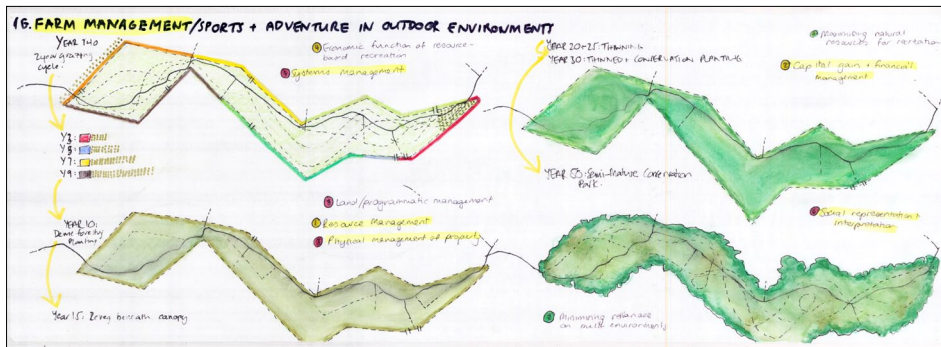 16. FARM MANAGEMENT/SPORTS + ADVENTURE IN OUTDOOR ENVIRONMENTS
YEAR TWO
2 year grazing
cycle.
Y3:
Y5:
Y7:
Y9:
YEAR 10:
Dense forestry
planting
Year 15: Z
beneath canopy
Economic function of resource-
based recreation
Systems Management
Land/programmatic management
Resource Management
Physical management of property
YEAR 20-25: THINNING
YEAR 30: THINNED + CONSERVATION PLANTING
YEAR 50: Semi-Mature Conservation
Park.
Maximising natural
resources for recreation
Capital gain + financial
management
Social representation +
interpretation
Minimising reliance
on built environments